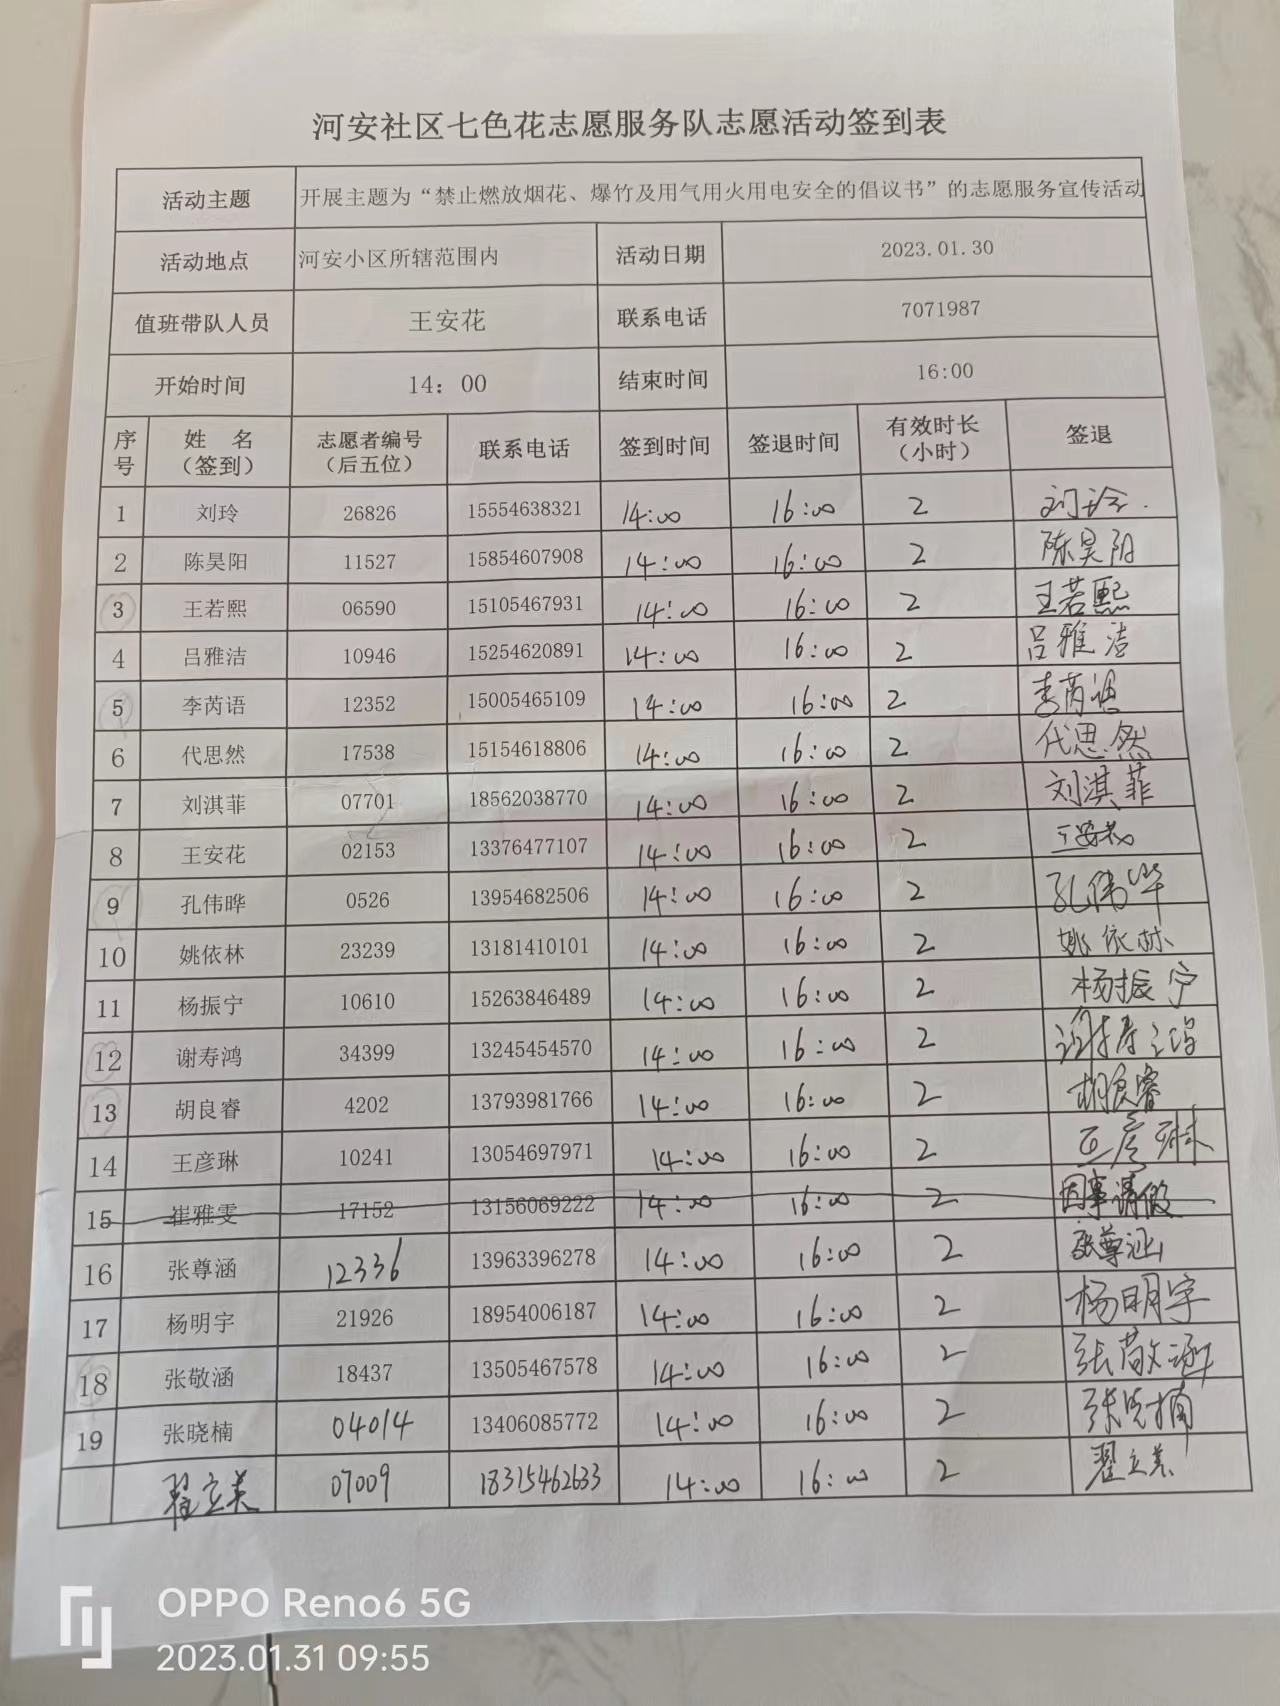 河安社区七色花志愿服务队志愿活动签到表
活动主题 开展主题为“禁止燃放烟花、爆竹及用气用火用电安全的倡议书”的志愿服务宣传活动
活动地点 河安小区所辖范围内 活动日期 2023.01.30
值班带队人员 王安花 联系电话 7071987
开始时间 14：00 结束时间 16:00
序号 姓 名（签到） 志愿者编号（后五位） 联系电话 签到时间 签退时间 有效时长（小时） 签退
1 刘玲 26826 15554638321 14:00 16:00 2 刘玲.
2 陈昊阳 11527 15854607908 14:00 16:00 2 陈昊阳
3 王若熙 06590 15105467931 14:00 16:00 2 王若熙
4 吕雅洁 10946 15254620891 14:00 16:00 2 吕雅洁
5 李芮语 12352 15005465109 14:00 16:00 2 李芮语
6 代思然 17538 15154618806 14:00 16:00 2 代思然
7 刘淇菲 07701 18562038770 14:00 16:00 2 刘淇菲
8 王安花 02153 13376477107 14:00 16:00 2 王安花
9 孔伟晔 0526 13954682506 14:00 16:00 2 孔伟晔
10 姚依林 23239 13181410101 14:00 16:00 2 姚依林
11 杨振宁 10610 15263846489 14:00 16:00 2 杨振宁
12 谢寿鸿 34399 13245454570 14:00 16:00 2 谢寿鸿
13 胡良睿 4202 13793981766 14:00 16:00 2 胡良睿
14 王彦琳 10241 13054697971 14:00 16:00 2 王彦琳
15 崔雅雯 17152 13156069222 14:00 16:00 2 因事请假
16 张尊涵 12336 13963396278 14:00 16:00 2 张尊涵
17 杨明宇 21926 18954006187 14:00 16:00 2 杨明宇
18 张敬涵 18437 13505467578 14:00 16:00 2 张敬涵
19 张晓楠 04014 13406085772 14:00 16:00 2 张晓楠
翟立美 07009 18315462633 14:00 16:00 2 翟立美
OPPO Reno6 5G
2023.01.31 09:55